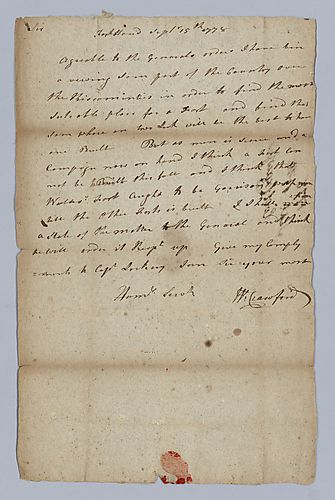 Sir Fort Hand Sept. 15th 1778
Agreable to the Generals orders I have bin
a viewing Sum part of the Country over
the Kiscominitis in order to find the most
Suteable place for a Fort and find that
Sum where on will be the best to have
one Built But as men is Scrice and a
Campign now on hand I think a Fort Can
not be Built this fall and I think
Fort ought to be
till the Other Forts is built I Shall
a State of the matter to the General and I think
he will order it kept up Give my Comply
ments to Capt. Sum Sir your most
Humb. Servt. W. Crawford